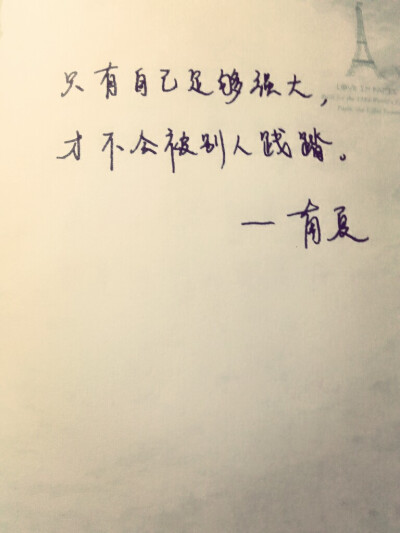 只有自己足够强大，
才不会被别人践踏。
— 南夏